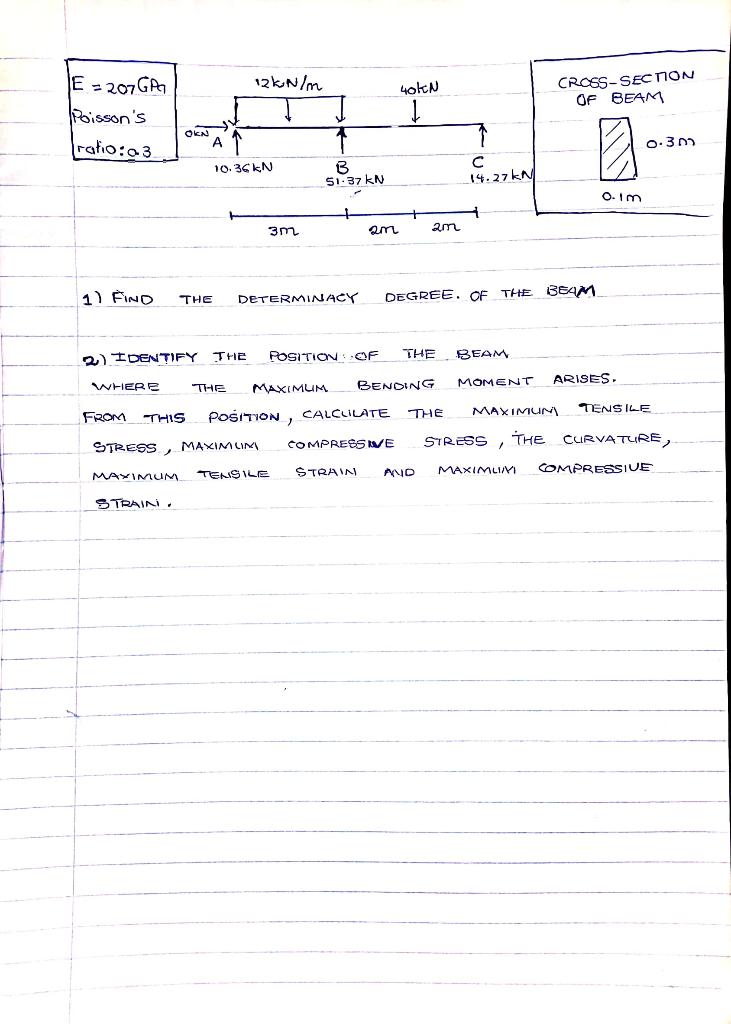 E = 207GPa
Poisson's
ratio: 0.3
12kN/m
40kN
0kN
A
10.36kN
B
51.37kN
C
14.27kN
3m
2m
2m
CROSS-SECTION
OF BEAM
0.3m
0.1m
1) FIND THE DETERMINACY DEGREE. OF THE BEAM
2) IDENTIFY THE POSITION OF THE BEAM
WHERE THE MAXIMUM BENDING MOMENT ARISES.
FROM THIS POSITION, CALCULATE THE MAXIMUM TENSILE
STRESS, MAXIMUM COMPRESSIVE STRESS, THE CURVATURE,
MAXIMUM TENSILE STRAIN AND MAXIMUM COMPRESSIVE
STRAIN.